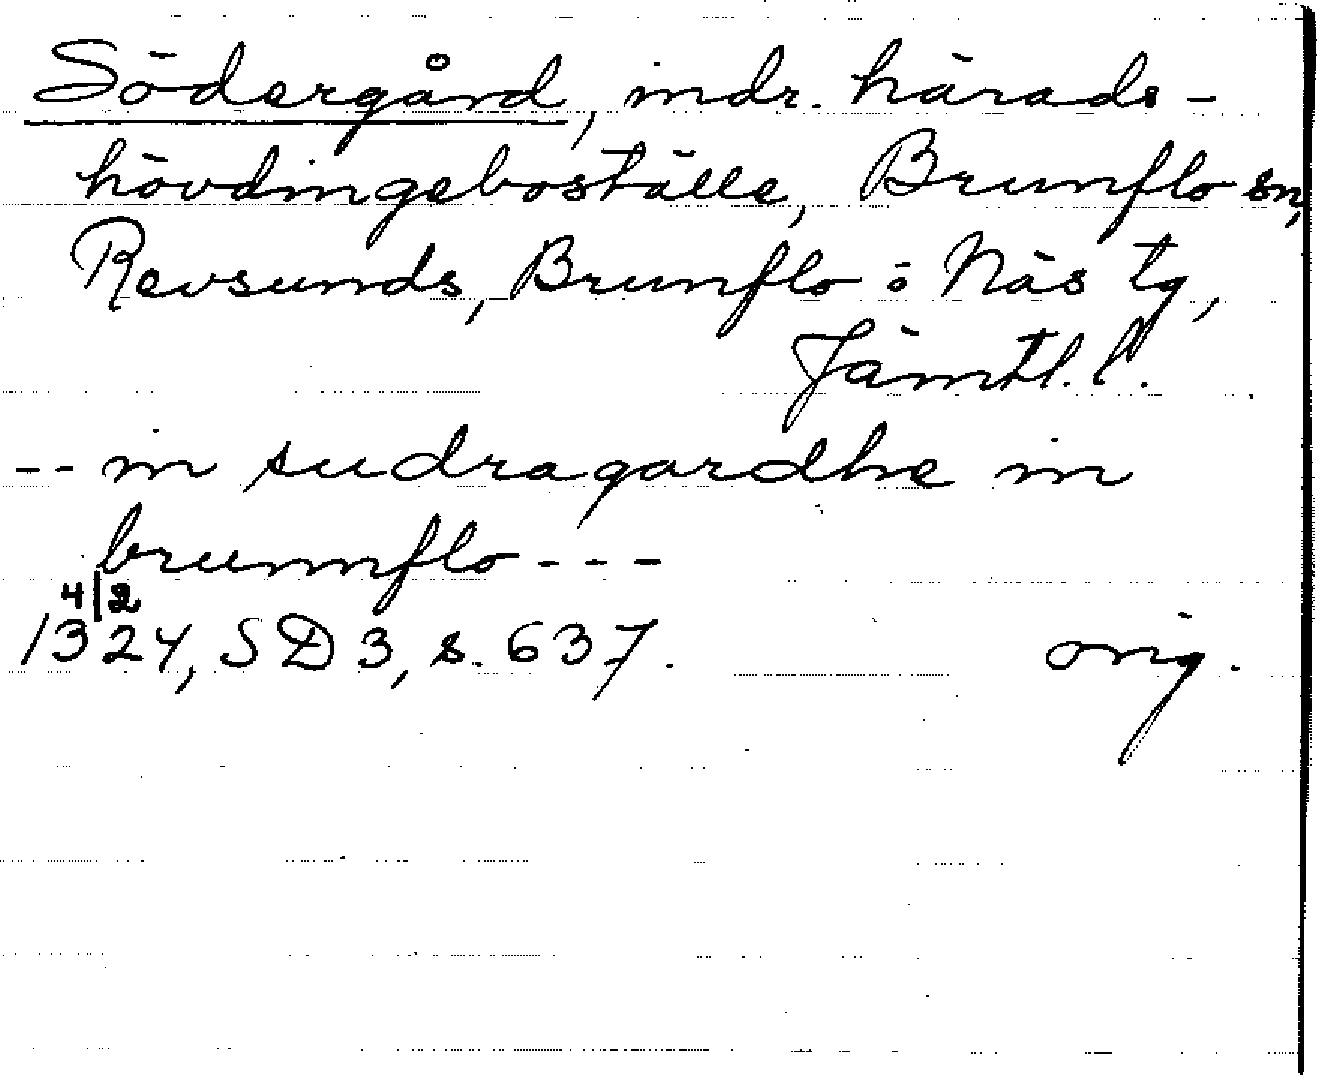 Södergård, indr. härads-
hövdingeboställe, Brunflo sn,
Revsunds, Brunflo o Näs tg,
Jämtl. l.
-- in sudragardhe in
brunnflo ---
4/2
1324, SD 3, s. 637. orig.